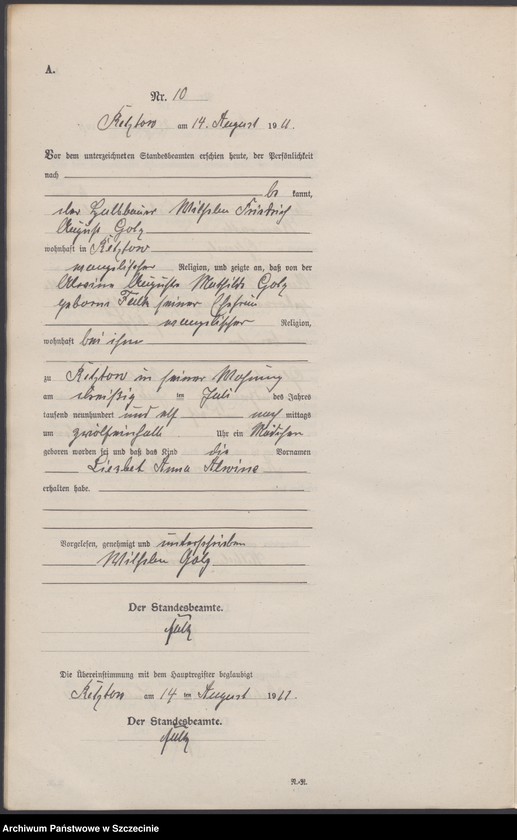 A.
Nr. 10
Ketztow am 14. August 1911.
Vor dem unterzeichneten Standesbeamten erschien heute, der Persönlichkeit
nach
be kannt,
der Halbbauer Wilhelm Friedrich
August Golz
wohnhaft in Ketztow
evangelischer Religion, und zeigte an, daß von der
Alwine Auguste Mathilde Golz
geborne Falk seiner Ehefrau
evangelischer Religion,
wohnhaft bei ihm
zu Ketztow in seiner Wohnung
am dreißig ten Juli des Jahres
tausend neunhundert und elf nach mittags
um zwölfeinhalb Uhr ein Mädchen
geboren worden sei und daß das Kind die Vornamen
Liesbet Anna Alwine
erhalten habe.
Vorgelesen, genehmigt und unterschrieben
Wilhelm Golz
Der Standesbeamte.
Die Übereinstimmung mit dem Hauptregister beglaubigt
Ketztow am 14 ten August 1911
Der Standesbeamte.
N.-R.
Archiwum Państwowe w Szczecinie